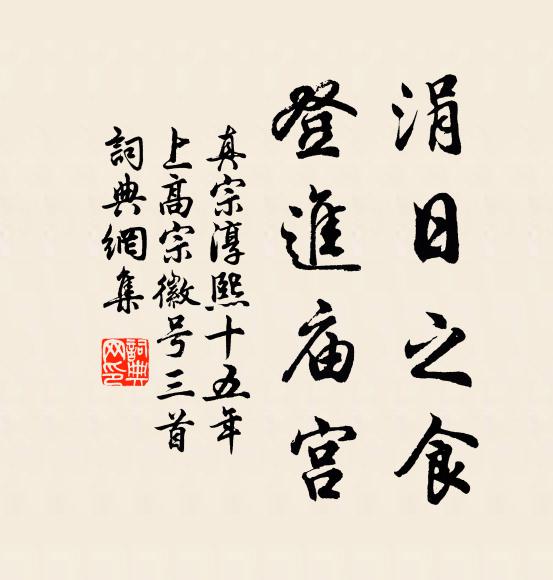 涓日之食
登進庙宫
真宗淳熙十五年
上高宗徽号三首
詞典網集
詞典
网印